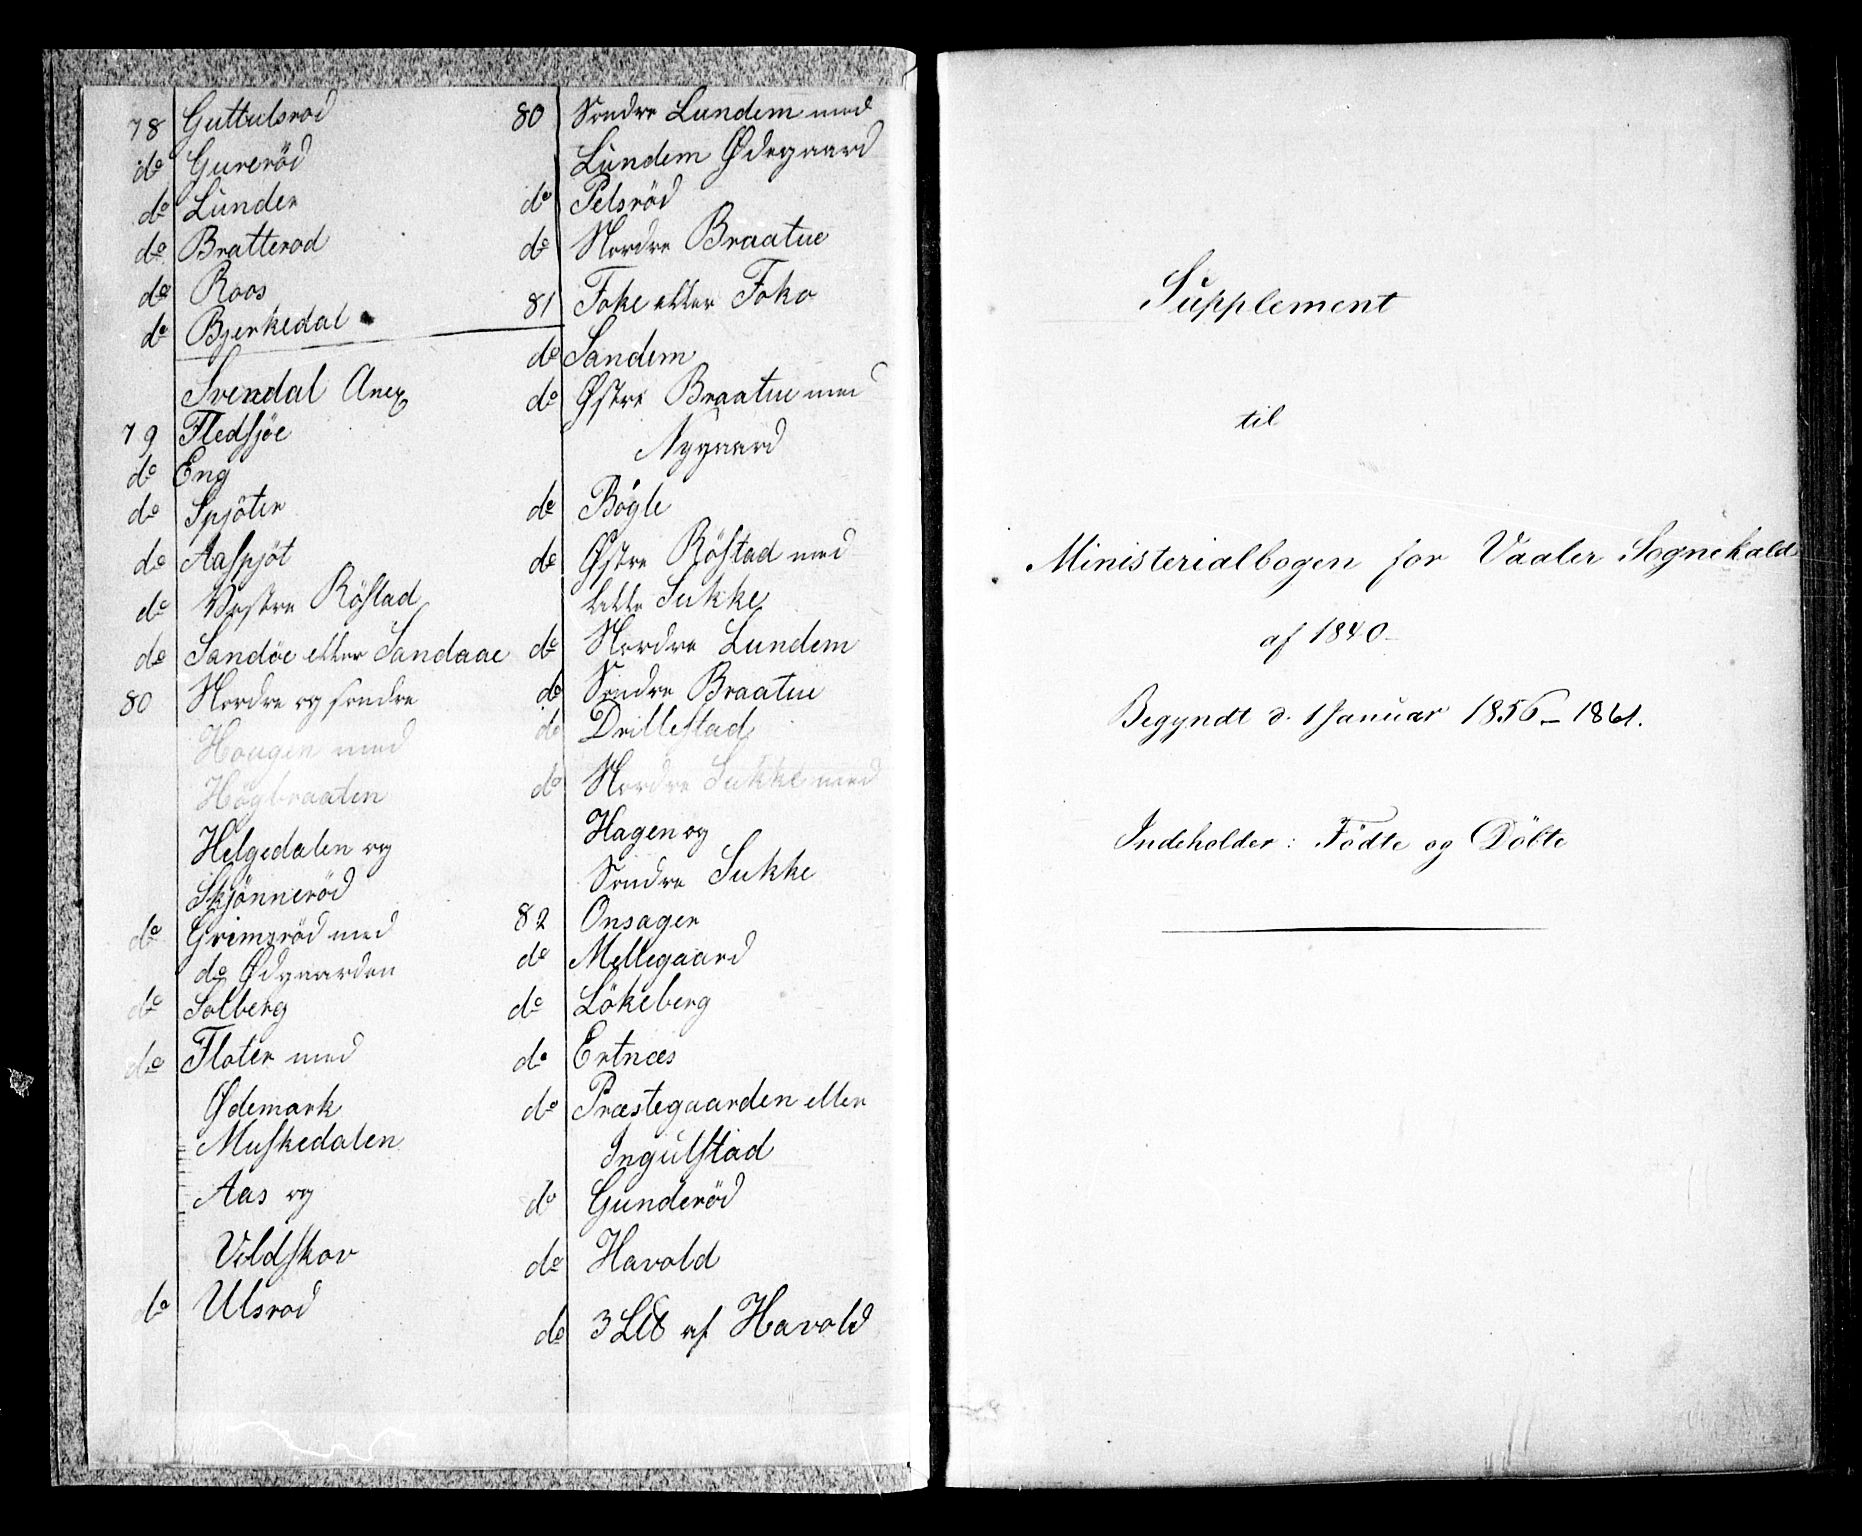 78 Guttulsrod
do Gureröd
do Lunder
do Bratterod
do Roos
do Bjerkedal
Svendal Anex
79 Fledsjöe
do Eng
do Spjöter
do Aaspjöt
do Vestre Röstad
do Sandöe eller Sandaae
80 Nordre og söndre
Hougen med
Högbraaten
Helgedalen og
Skjönneröd
do Grimsröd med
do Ødgaarden
do Solberg
do Floter med
Ødemark
Muskedalen
Aas og
Vildskov
do Ulsrod
80 Söndre Lundem med
Lundem Ødegaard
do Pelsröd
do Nordre Braatue
81 Foke eller Foko
do Sandem
do Østre Braatue med
Nygaard
do Bögle
do Østre Röstad med
lille Sukke
do Nordre Lundem
do Söndre Braatue
do Drillestad
do Nordre Sukke med
Hagen og
Söndre Sukke
82 Onsager
do Mellegaard
do Lökeberg
do Ertnæs
do Præstegaarden eller
Ingulstad
do Gunderöd
do Havold
do 3 af Havold
Supplement
til
Ministerialbogen for Vaaler Sognekald
af 1840
Begyndt d. 1 Januar 1856 – 1861.
Indeholder: Födte og Döbte